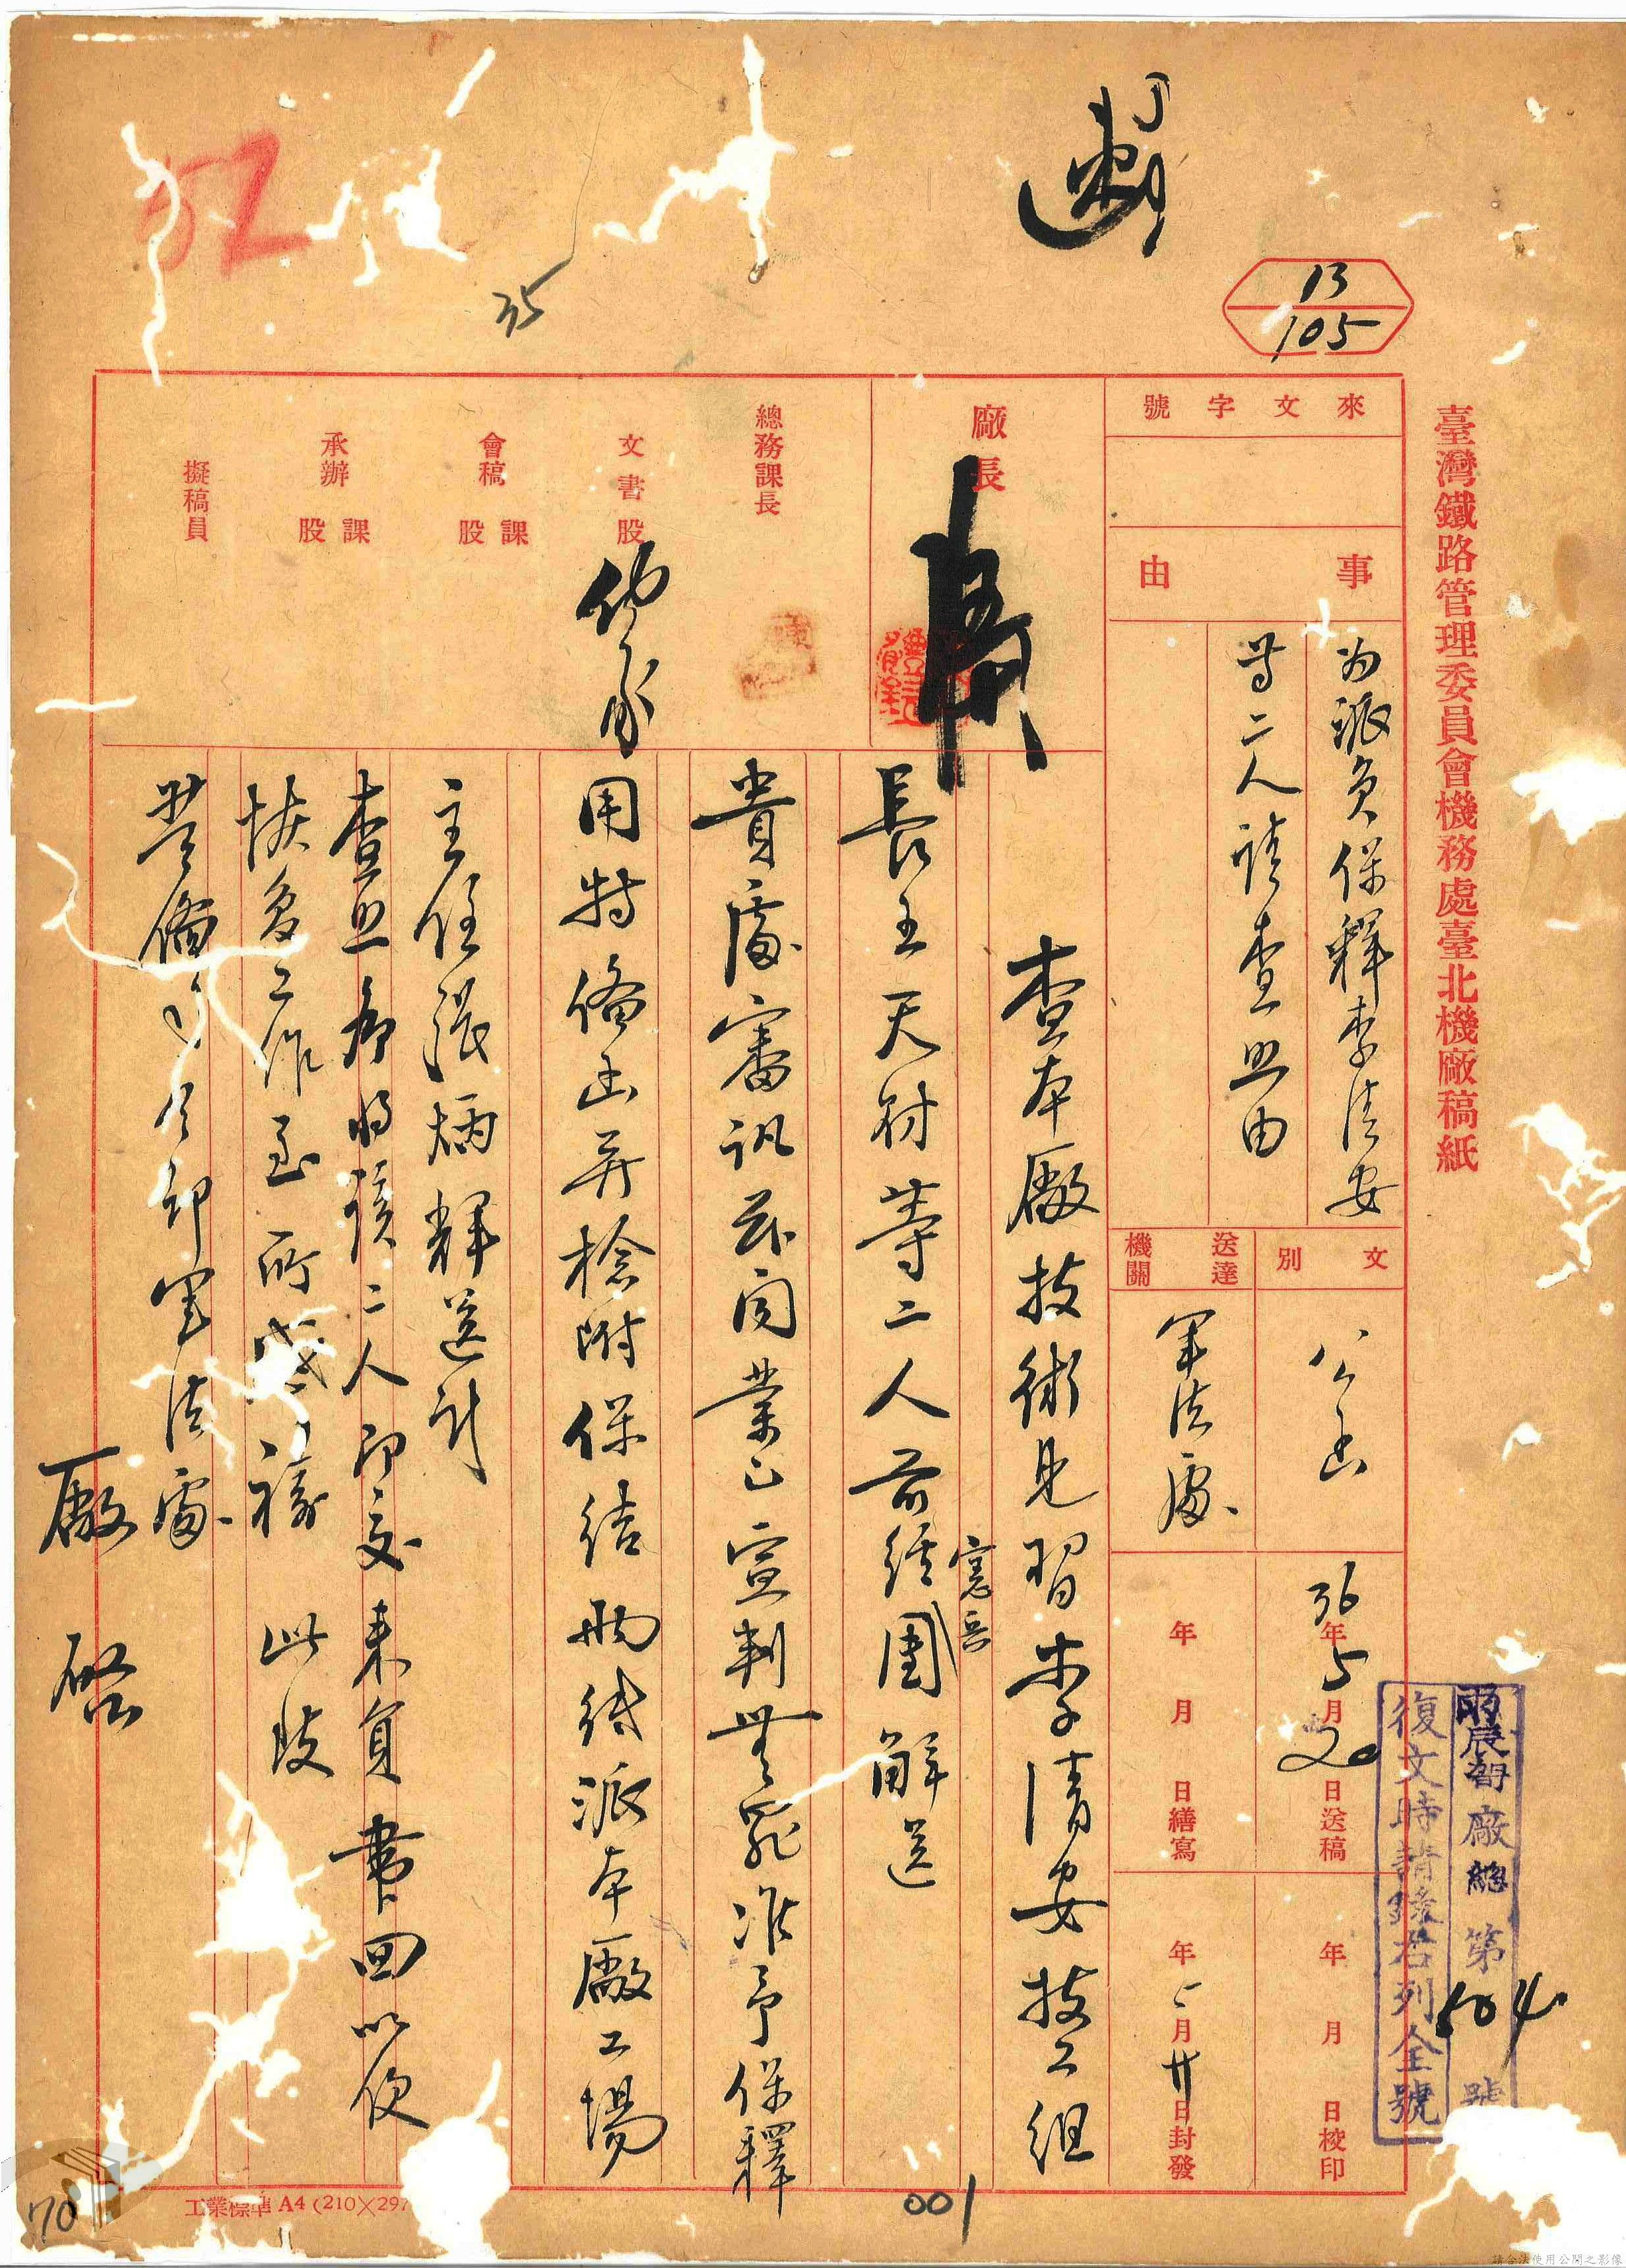 臺灣鐵路管理委員會機務處臺北機廠稿紙
13
105
來文字號
事由
為派員保釋李清安
等二人請查照由
文別
公函
送達機關
軍法處
36年5月20日送稿
年月日繕寫
年月日校印
年 月廿日封發
廠總第504號
復文時請錄右列全號
廠長
總務課長
文書股
會稿課股
承辦課股
擬稿員
查本廠技術見習李清安技工組
長王天財等二人前經憲兵團解送
貴處審訊茲聞業已宣判無罪准予保釋
用特備函并檢附保結兩紙派本廠工場
主任張炳輝送討
查照希將該二人即交來員書回以便
恢復工作至所感禱 此致
警備司令部軍法處
廠啓
35
52
70
001
工業標準A4(210×297
請合法使用公開之影像